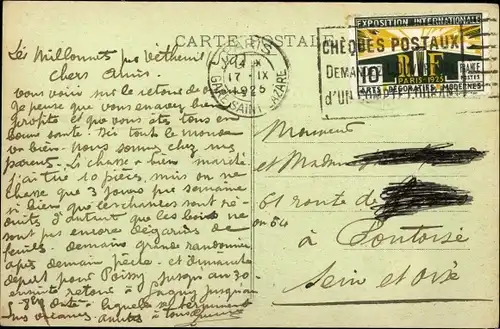 CARTE POSTALE
PARIS
17 - IX
1925
GARE SAINT-LAZARE
CHÈQUES POSTAUX
DEMANDE
d'UN COMPTE COURANT
EXPOSITION INTERNATIONALE
10c
FRANCE
POSTES
PARIS-1925
ARTS DÉCORATIFS MODERNES
Les Millonnets par Vétheuil
Chers amis.
vous voici sur le retour
je pense que vous en avez bien
profité et que vous êtes tous en
bonne santé. Ici tout le monde
va bien. nous sommes chez mes
parents. La chasse a bien marché
j'ai tué 10 pièces, mais on ne
chasse que 3 jours par semaine
si bien que les chances sont ré-
duites d'autant que les bois ne
sont pas encore dégarnis de
feuilles. demain grande randonnée
après demain pêche. et dimanche
départ pour Poissy jusqu'au 30
ensuite retour à Lagny jusqu'au
8 date à laquelle se terminent
mes vacances. amitiés à tous
Monsieur
et Madame
61 route de
à Pontoise
Seine et Oise